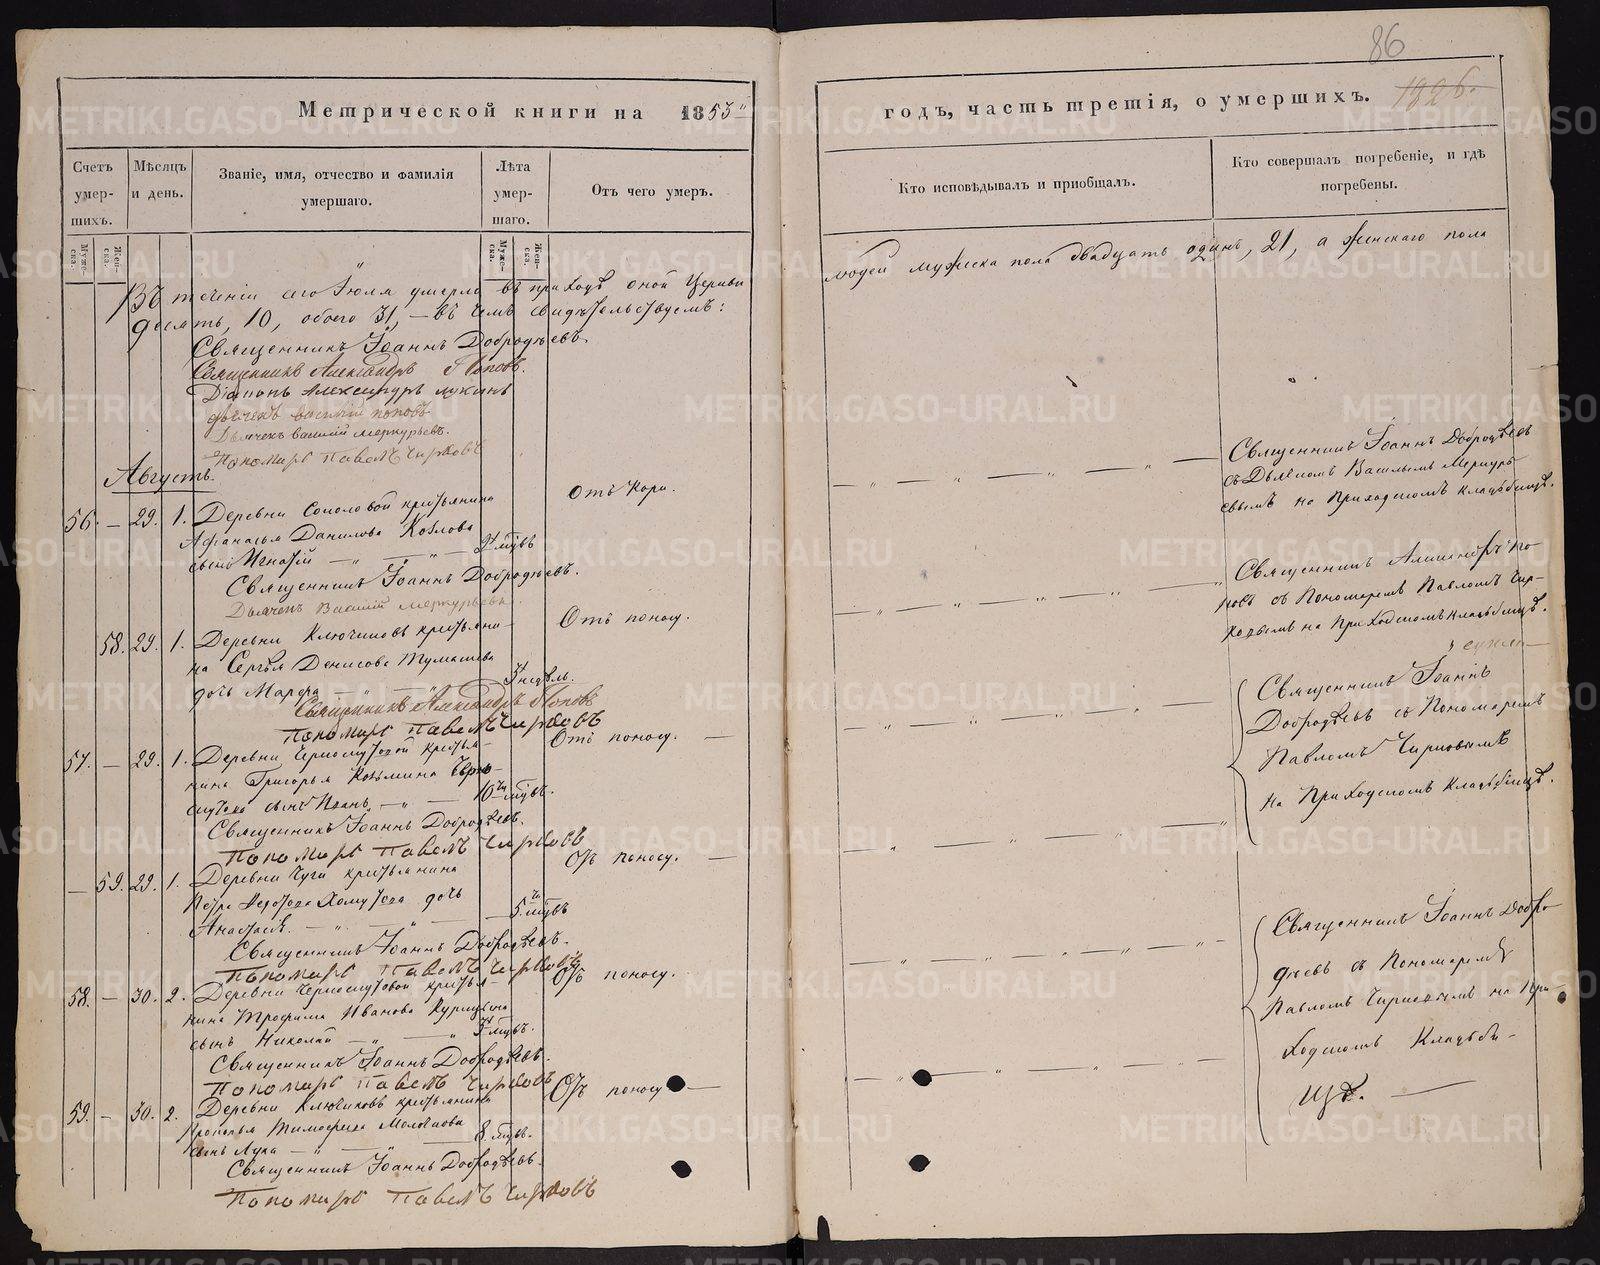 86
1826.
Метрической книги на 1853 годъ, часть третія, о умершихъ.
Счетъ умер-шихъ.
Мѣсяцъ и день.
Званіе, имя, отчество и фамилія умершаго.
Лѣта умер-шаго.
Отъ чего умеръ.
Кто исповѣдывалъ и пріобщалъ.
Кто совершалъ погребеніе, и гдѣ погребены.
Муже-ска.
Жен-ска.
Муже-ска.
Жен-ска.
Въ теченіи сего Іюля умерло въ приходѣ оной Церкви людей мужеска пола двадцать одинъ, 21, а женскаго пола
десять, 10, обоего 31, — въ чемъ свидѣтельствуемъ:
Священникъ Іоаннъ Добродѣевъ.
Священникъ Александръ Поповъ.
Діаконъ Александръ Лукинъ
Дьячекъ Василій Поповъ
Дьячекъ Василій Меркурьевъ.
Пономарь Павелъ Чирковъ
Августъ.
56. — 29. 1. Деревни Соколовой крестьянина
Афанасья Данилова Козлова
сынъ Игнатій — „ — „ — мцвъ
Отъ Кори.
Священникъ Іоаннъ Добродѣевъ
съ Дьячкомъ Васильемъ Меркурь-
евымъ на Приходскомъ кладбищѣ.
Священникъ Іоаннъ Добродѣевъ.
Дьячекъ Василій Меркурьевъ.
58. 29. 1. Деревни Ключиковъ крестьяни-
на Сергѣя Денисова Тумашева
дочь Марѳа — „ — недѣль.
Отъ поносу.
Священникъ Александръ По-
повъ съ Пономаремъ Павломъ Чир-
ковымъ на Приходскомъ кладбищѣ.
Священникъ Александръ Поповъ
Пономарь Павелъ Чирковъ
57. — 29. 1. Деревни Черноскутовой крестья-
нина Григорья Козьмина Черно-
скутова сынъ Иванъ — „ — 10 мцвъ.
Отъ поносу. —
Священникъ Іоаннъ
Добродѣевъ съ Пономаремъ
Павломъ Чирковымъ
на Приходскомъ Кладбищѣ.
Священникъ Іоаннъ Добродѣевъ.
Пономарь Павелъ Чирковъ
— 59. 29. 1. Деревни Чуги крестьянина
Петра Ѳедотова Хомутова дочь
Анастасія. — „ — „ — 5 мцвъ
Отъ поносу. —
Священникъ Іоаннъ Добродѣевъ.
Пономарь Павелъ Чирковъ
58. — 30. 2. Деревни Черноскутовой крестья-
нина Трофима Иванова
сынъ Николай — „ — „ мцвъ.
Отъ поносу.
Священникъ Іоаннъ Добро-
дѣевъ съ Пономаремъ
Павломъ Чирковымъ на При-
ходскомъ Кладби-
щѣ. —
Священникъ Іоаннъ Добродѣевъ.
Пономарь Павелъ Чирковъ
59. — 30. 2. Деревни Ключиковъ крестьянина
Прокопья Тимофеева
сынъ Лука — „ — „ — 8 мцвъ.
Отъ поносу —
Священникъ Іоаннъ Добродѣевъ.
Пономарь Павелъ Чирковъ
METRIKI.GASO-URAL.RU